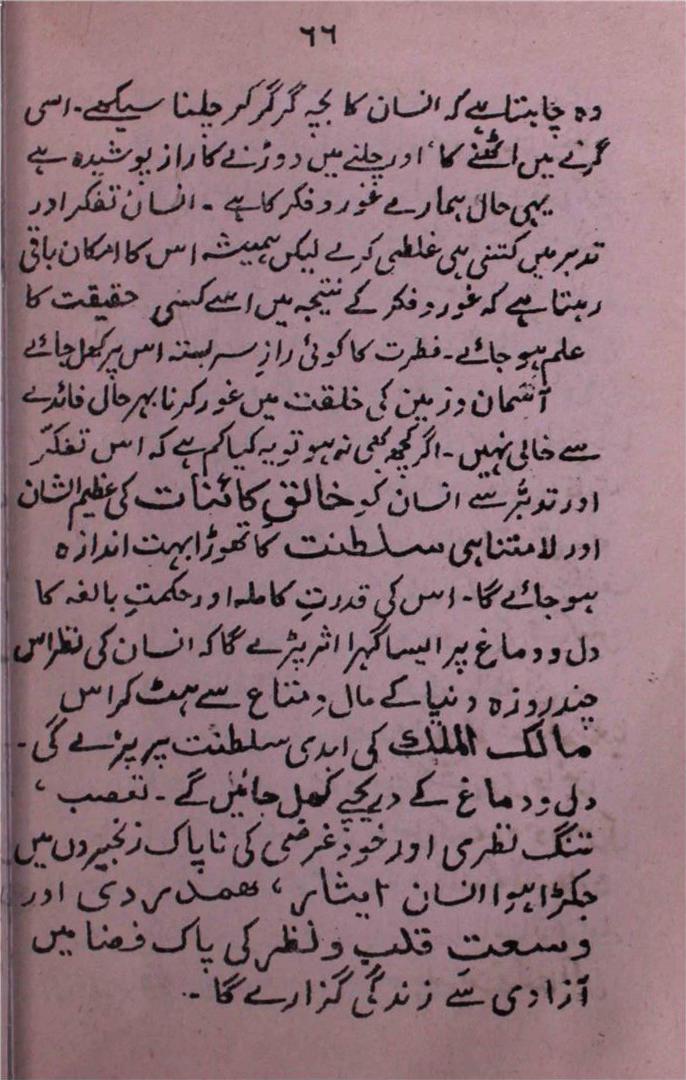 ۶۶
وہ چاہتا ہے کہ انسان کا بچہ گر گر کر چلنا سیکھے۔ اسی
گرنے میں اٹھنے کا، اور چلنے میں دوڑنے کا راز پوشیدہ ہے
یہی حال ہمارے غور و فکر کا ہے۔ انسان تفکر اور
تدبر میں کتنی ہی غلطی کرے لیکن ہمیشہ اس کا امکان باقی
رہتا ہے کہ غور و فکر کے نتیجہ میں اسے کسی حقیقت کا
علم ہو جائے۔ فطرت کا کوئی رازِ سربستہ اس پر کھل جائے
آسمان و زمین کی خلقت میں غور کرنا بہرحال فائدے
سے خالی نہیں۔ اگر کچھ بھی نہ ہو تو یہ کیا کم ہے کہ اس تفکّر
اور تدبّر سے انسان کو خالقِ کائنات کی عظیم الشان
اور لامتناہی سلطنت کا تھوڑا بہت اندازہ
ہو جائے گا۔ اس کی قدرتِ کاملہ اور حکمتِ بالغہ کا
دل و دماغ پر ایسا گہرا اثر پڑے گا کہ انسان کی نظر اس
چند روزہ دنیا کے مال و متاع سے ہٹ کر اس
مالک الملک کی ابدی سلطنت پر پڑے گی۔
دل و دماغ کے دریچے کھل جائیں گے۔ تعصب،
تنگ نظری اور خود غرضی کی ناپاک زنجیروں میں
جکڑا ہوا انسان ایثار، ہمدردی اور
وسعتِ قلب و نظر کی پاک فضا میں
آزادی سے زندگی گزارے گا۔